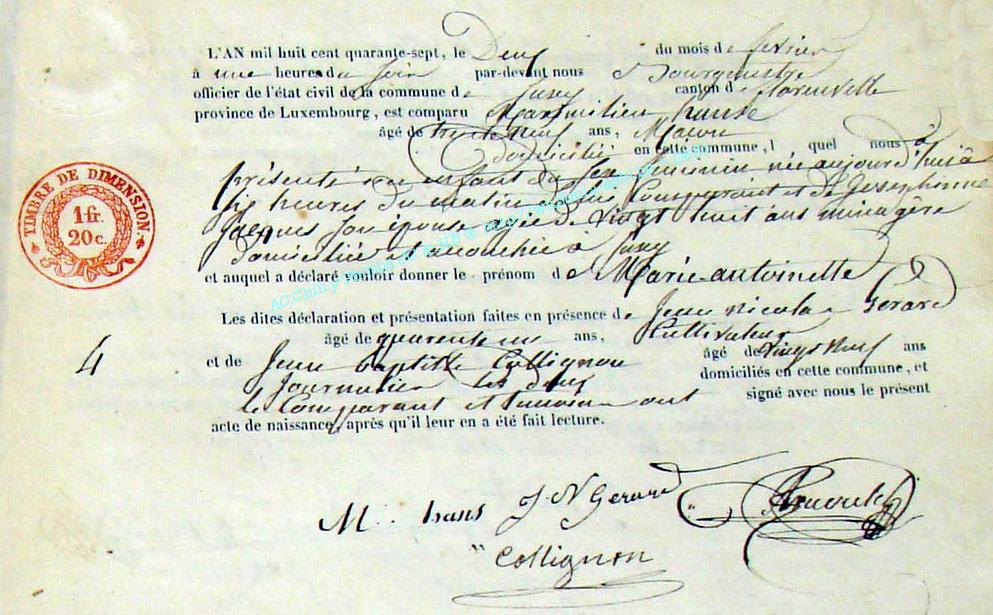 L'AN mil huit cent quarante-sept, le Deux du mois de fevrier
à une heures du soir par-devant nous Bourgmestre
officier de l'état civil de la commune de Juzey canton de florenville
province de Luxembourg, est comparu Maximilien hanse
âgé de trente neuf ans, Maçon
domicilié en cette commune, l quel nous a
présenté un enfant du sexe féminin née aujourd'hui à
heures du matin de lui Comparant et de Josephinne
Jacques son épouse agée de vingt huit ans ménagère
domiciliée et accouchée à Juzey
et auquel a déclaré vouloir donner le prénom de Marie-antoinette
Les dites déclaration et présentation faites en présence de Jean nicolas Gérard
âgé de quarente un ans, Cultivateur
et de Jean baptiste Collignon âgé de vingt neuf ans
journalier les deux domiciliés en cette commune, et
le Comparant et temoin ont signé avec nous le présent
acte de naissance, après qu'il leur en a été fait lecture.
TIMBRE DE DIMENSION
1 fr.
20 c.
4
M hans J N Gerard
Collignon